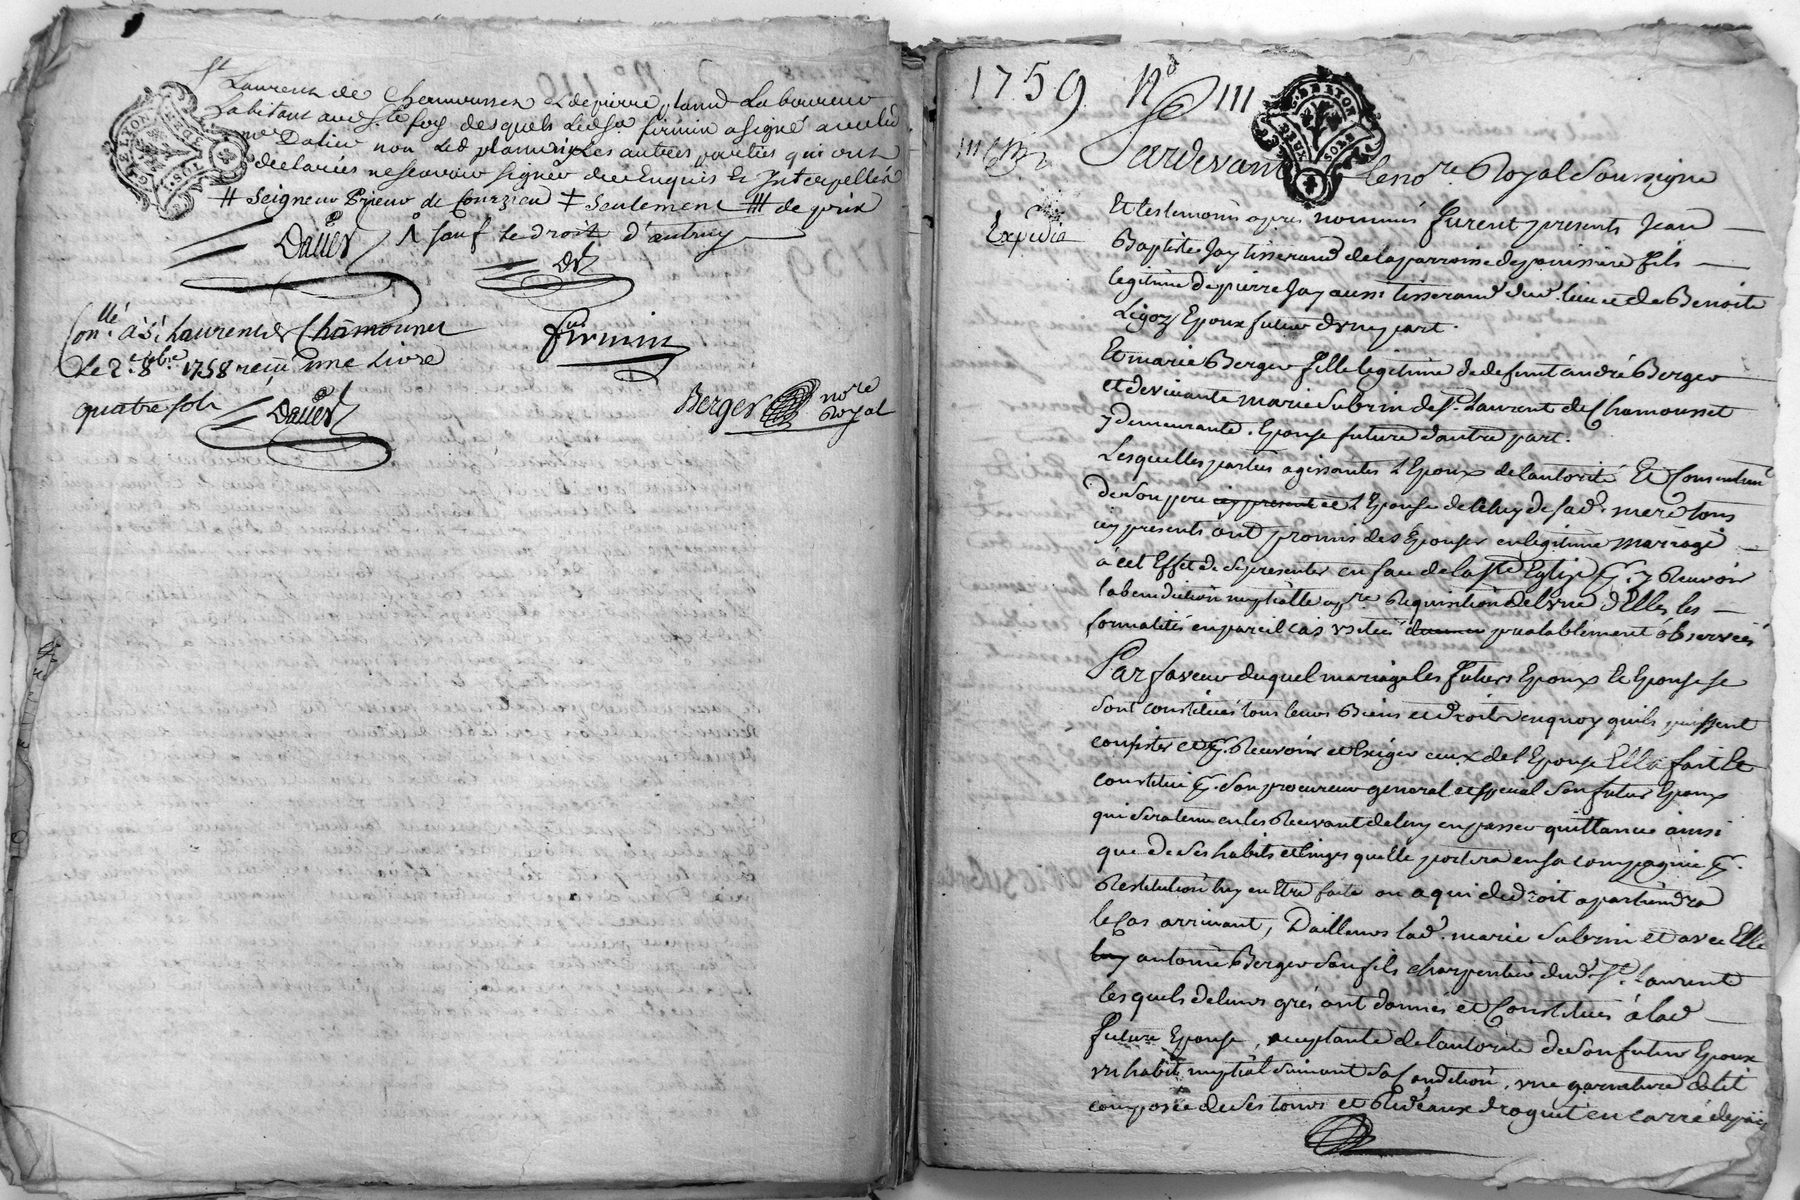 St Laurent de Chamousset et de pierre pland Laboureur
habitant aud. le foy desquels led sr firmin a signé avec led
me Dalier non led pland ny les autres parties qui ont
declarées ne scavoir signer de ce Enquis et Interpellés
# Seigneur Prieur de Courzieu ‡ Seulement ⧻ de prix
Dauer Λ sauf le droit d'autruy
DR
Conllé à St Laurent de Chamousset
firmin
Le 2e 8bre 1758 reçu une livre
quatre sols Dauer
Berger nore Royal
DE LYON
DEUX SOLS
1759 No 111
G. DE LYON
DEUX SOLS
111
Expedié
Pardevant le nore Royal Soussigné
Et les temoins apres nommés furent presents Jean
Baptiste Jay tisserand de la parroisse de poüissiere fils
legitime de pierre Jay aussi tisserand dud. lieu et de Benoite
Ligoz Epoux futur d'une part.
Et marie Berger fille legitime de defunt andré Berger
et de vivante marie Subrin de St Laurent de Chamousset
y demeurante. Epouse future d'autre part.
Lesquelles parties agissantes l'Epoux de l'autorité Et Consentemt
de Son pere icy presente et l'Epouse de celuy de sad. mere tous
icy presents ont promis de s'Epouser en legitime mariage
à cet Effet de se presenter en face de la Ste Eglise pr. y Recevoir
la benediction nuptialle a pre Requisition de l'une d'Elles les
formalités en pareil cas usitées prealablement observées
Par faveur duquel mariage les futurs Epoux et Epouse se
sont constitués tous leurs Biens et droits en quoy quils puissent
consister et pr. Recevoir et Exiger ceux de l'Epouse Ella fait et
constitué pr. Son procureur general et special Son futur Epoux
qui sera tenu en les Recevant de luy en passer quittance ainsi
que de Ses habits et linges quelle portera en sa compagnie pr.
Restitution luy en Etre faite ou a qui de droit apartiendra
le Cas arrivant, D'ailleurs lad. marie Subrin et avec Elle
antoine Berger Son fils charpentier dud. St Laurent
lesquels de leurs grés ont donnés et Constitués à lad
future Epouse, acceptante de l'autorité de Son futur Epoux
un habit nuptial suivant sa Condition, une garniture de lit
composée de Ses tours et Rideaux droguet en carré de